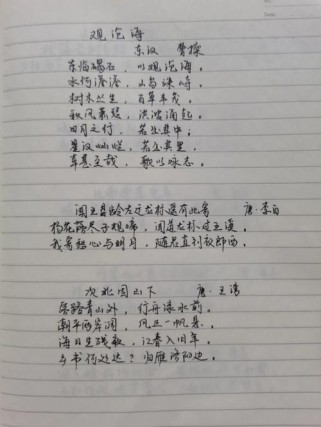 观沧海
东汉 曹操
东临碣石，以观沧海。
水何澹澹，山岛竦峙。
树木丛生，百草丰茂。
秋风萧瑟，洪波涌起。
日月之行，若出其中；
星汉灿烂，若出其里。
幸甚至哉，歌以咏志。
闻王昌龄左迁龙标遥有此寄 唐·李白
杨花落尽子规啼，闻道龙标过五溪。
我寄愁心与明月，随君直到夜郎西。
次北固山下 唐·王湾
客路青山外，行舟绿水前。
潮平两岸阔，风正一帆悬。
海日生残夜，江春入旧年。
乡书何处达？归雁洛阳边。